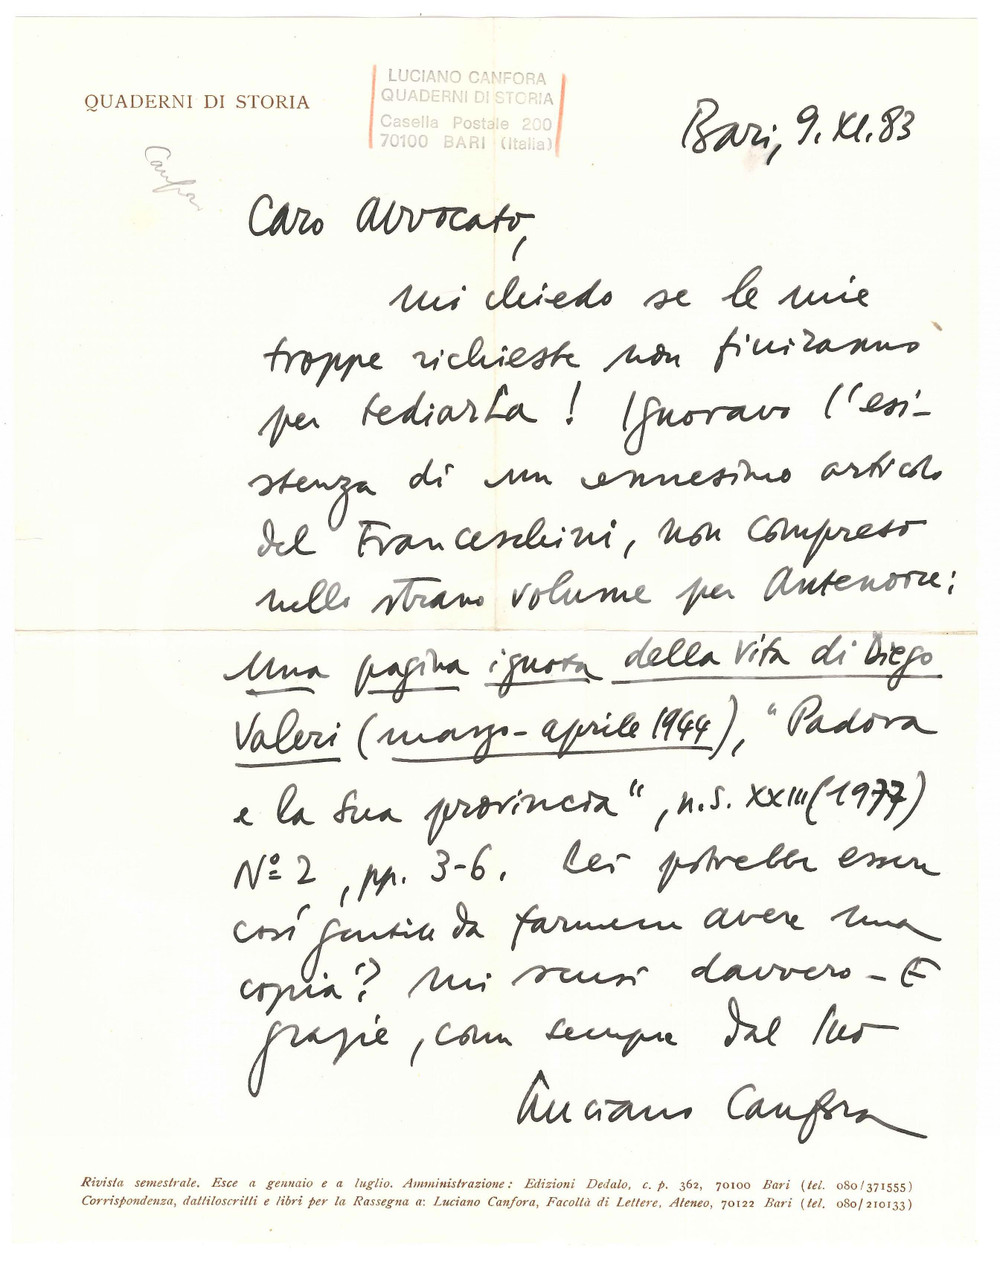 QUADERNI DI STORIA
LUCIANO CANFORA
QUADERNI DI STORIA
Casella Postale 200
70100 BARI (Italia)
Canfora
Bari, 9.XI.83
Caro Avvocato,
mi chiedo se le mie
troppe richieste non finiranno
per tediarLa! Ignoravo l'esi-
stenza di un ennesimo articolo
del Franceschini, non compreso
nello strano volume per Antenore:
una pagina ignota della vita di Diego
Valeri (marzo-aprile 1944), "Padova
e la sua provincia", n.s. XXIII (1977)
Nº 2, pp. 3-6. Lei potrebbe essere
così gentile da farmene avere una
copia? Mi scusi davvero - E
grazie, come sempre dal Suo
Luciano Canfora
Rivista semestrale. Esce a gennaio e a luglio. Amministrazione: Edizioni Dedalo, c. p. 362, 70100 Bari (tel. 080/371555)
Corrispondenza, dattiloscritti e libri per la Rassegna a: Luciano Canfora, Facoltà di Lettere, Ateneo, 70122 Bari (tel. 080/210133)